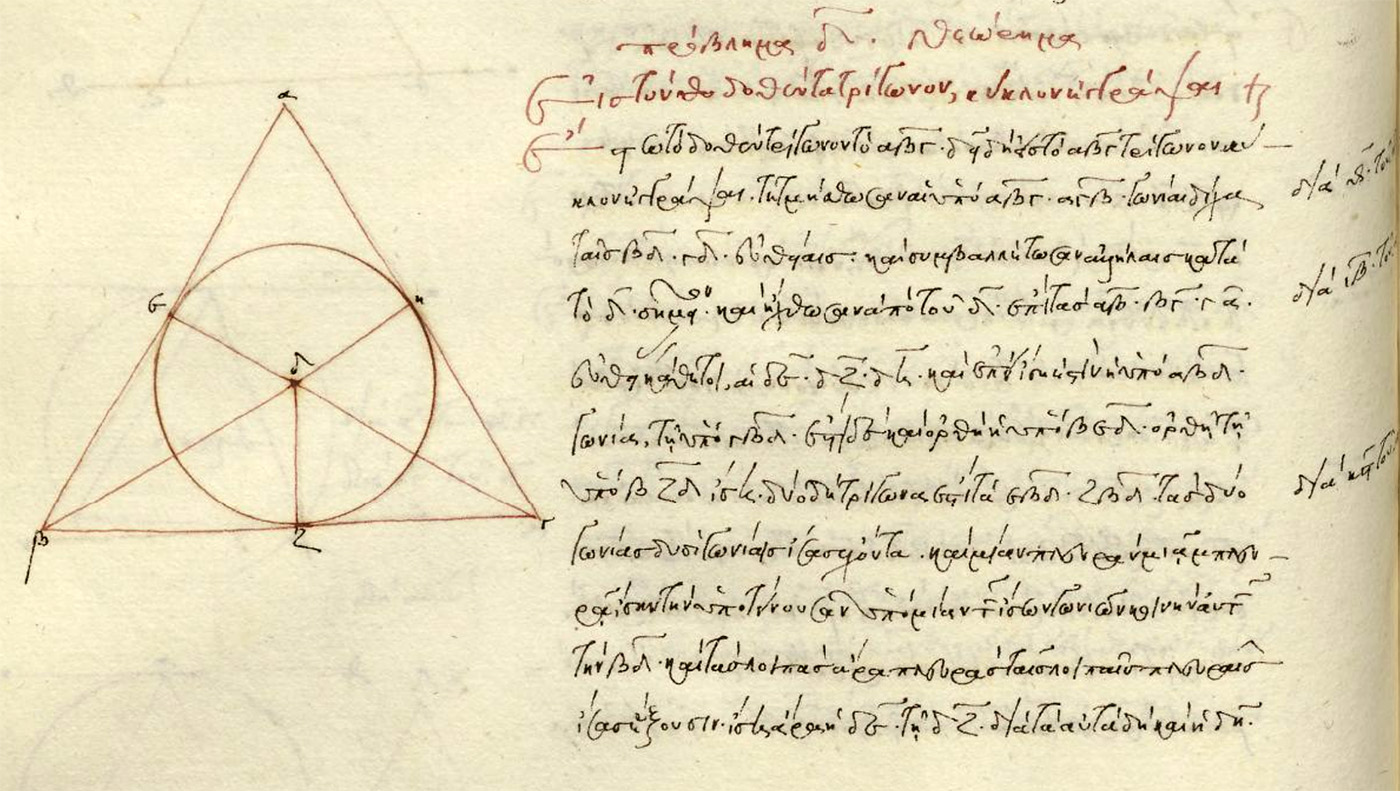 πρόβλημα δ. θεώρημα
Εἰς τὸν δοθέντα τρίγωνον, κύκλον ἐγγράψαι
Ἔστω τὸ δοθὲν τρίγωνον τὸ αβγ. δεῖ δὴ εἰς τὸ αβγ τρίγωνον κύ
κλον ἐγγράψαι. τετμήσθωσαν αἱ ὑπὸ αβγ. αγβ. γωνίαι δίχα
ταῖς βδ. γδ. εὐθείαις: καὶ συμβαλλέτωσαν ἀλλήλαις κατὰ
τὸ δ. σημεῖον. καὶ ἤχθωσαν ἀπὸ τοῦ δ. ἐπὶ τὰς αβ. βγ. γα.
εὐθείας κάθετοι, αἱ δε. δζ. δη. καὶ ἐπεὶ ἴση ἐστὶν ἡ ὑπὸ αβδ.
γωνία, τῇ ὑπὸ γβδ. ἐστὶ δὲ καὶ ὀρθὴ ἡ ὑπὸ βεδ. ὀρθῇ τῇ
ὑπὸ βζδ ἴση. δύο δὴ τρίγωνά ἐστι τὰ εβδ. ζβδ. τὰς δύο
γωνίας δυσὶ γωνίαις ἴσας ἔχοντα. καὶ μίαν πλευρὰν μιᾷ πλευ
ρᾷ ἴσην τὴν ὑποτείνουσαν ὑπὸ μίαν τῶν ἴσων γωνιῶν κοινὴν αὐτῶν
τὴν βδ. καὶ τὰς λοιπὰς ἄρα πλευρὰς ταῖς λοιπαῖς πλευραῖς
ἴσας ἕξουσιν. ἴση ἄρα ἡ δε. τῇ δζ. διὰ τὰ αὐτὰ δὴ καὶ ἡ δη.
α
ε
η
δ
β
ζ
γ
διὰ
διὰ ιβ. τοῦ
διὰ κϛ τοῦ